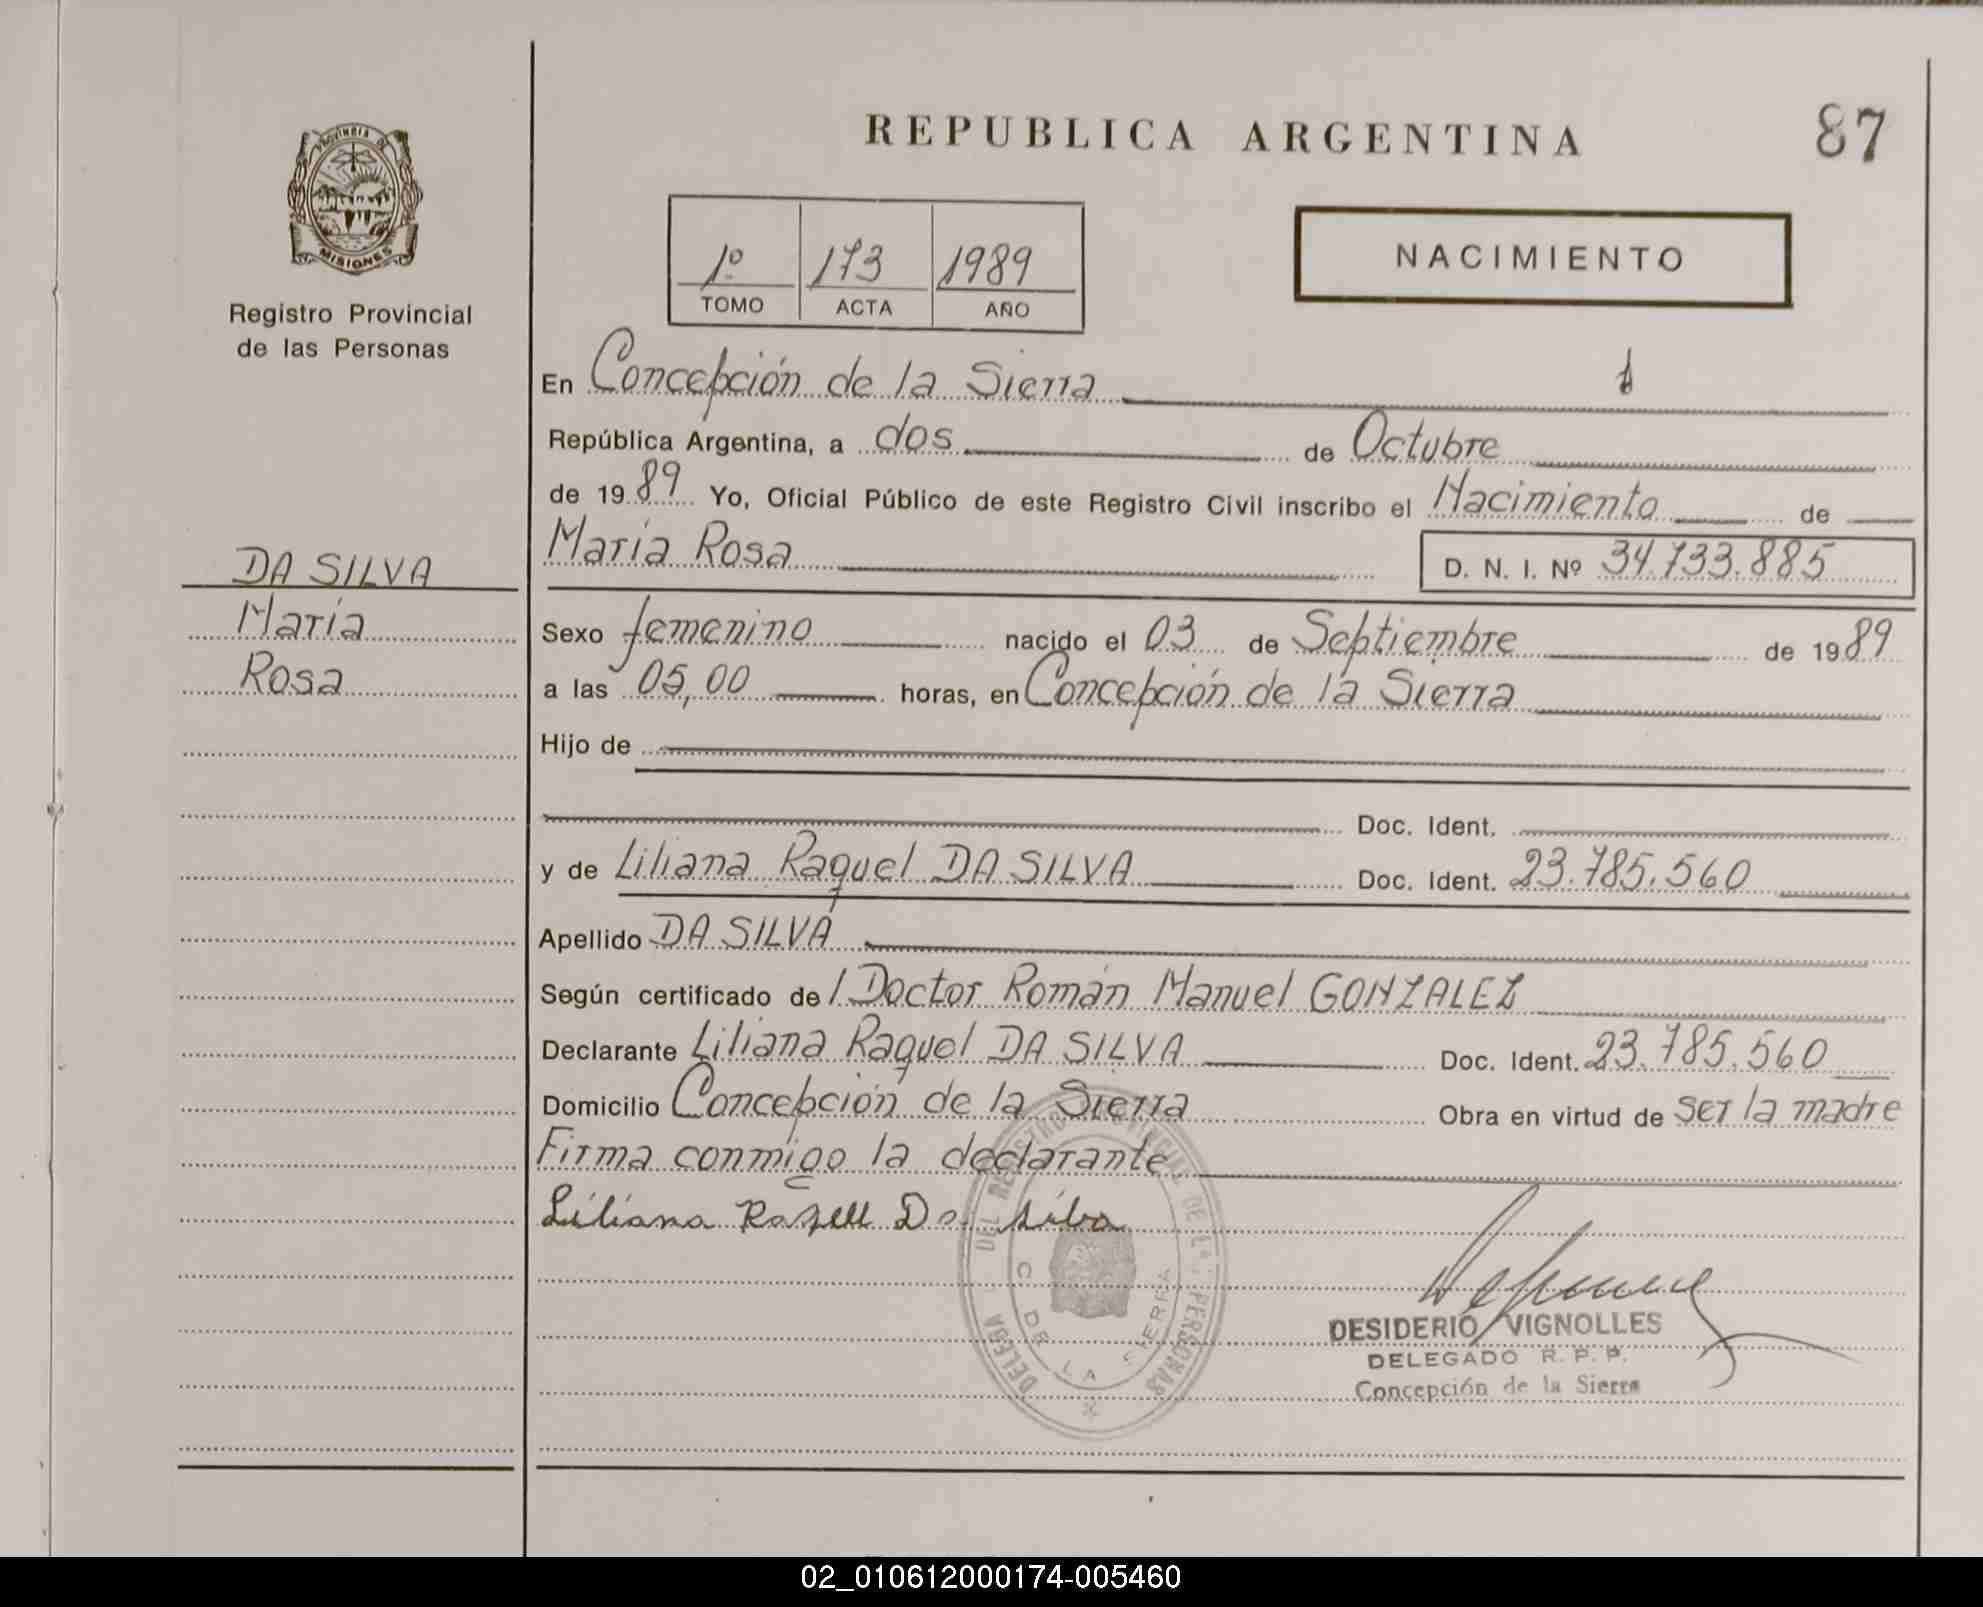 REPUBLICA ARGENTINA
87
PROVINCIA DE
MISIONES
Registro Provincial
de las Personas
1º 173 1989
TOMO ACTA AÑO
NACIMIENTO
En Concepción de la Sierra
República Argentina, a dos de Octubre
de 1989 Yo, Oficial Público de este Registro Civil inscribo el Nacimiento de
María Rosa D. N. I. Nº 34.733.885
DA SILVA
María
Rosa
Sexo femenino nacido el 03 de Septiembre de 1989
a las 05,00 horas, en Concepción de la Sierra
Hijo de
Doc. Ident.
y de Liliana Raquel DA SILVA Doc. Ident. 23.785.560
Apellido DA SILVA
Según certificado del Doctor Román Manuel GONZALEZ
Declarante Liliana Raquel DA SILVA Doc. Ident. 23.785.560
Domicilio Concepción de la Sierra Obra en virtud de ser la madre
Firma conmigo la declarante
Liliana Raquell Da silva
DELEGA DEL REGISTRO PROVINCIAL DE LAS PERSONAS
C DE LA SIERRA
DESIDERIO VIGNOLLES
DELEGADO R. P. P.
Concepción de la Sierra
02_010612000174-005460